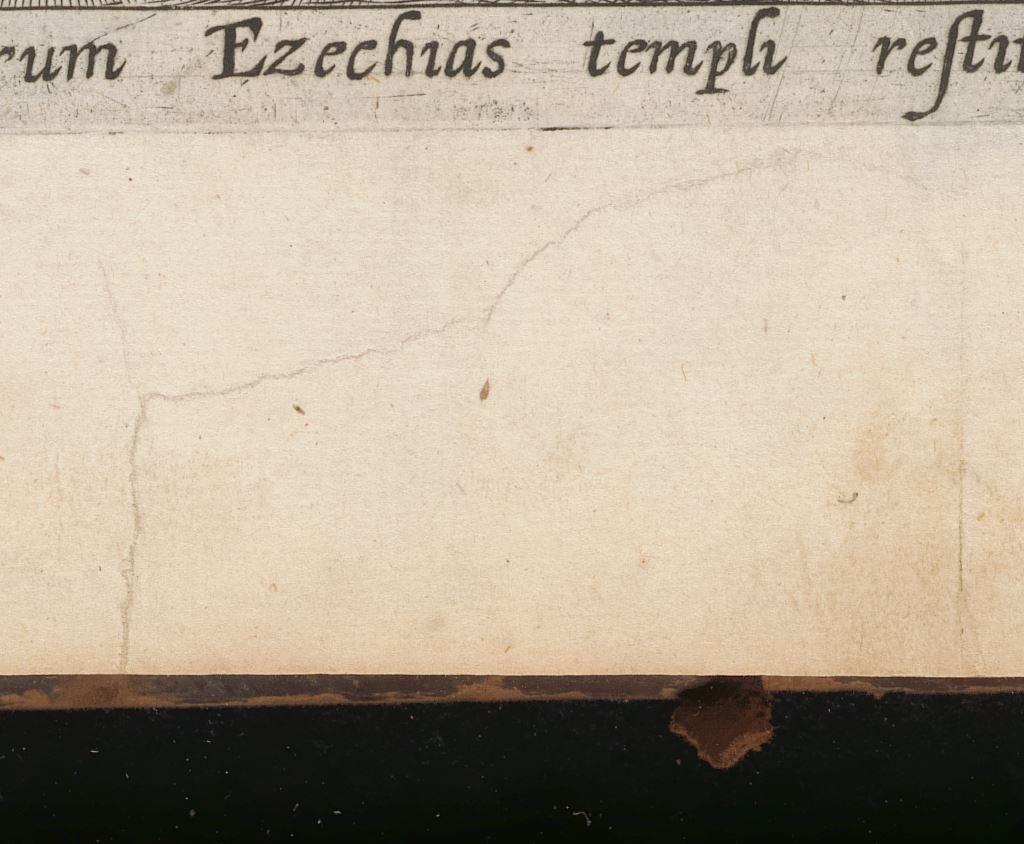 rum Ezechias templi reſti